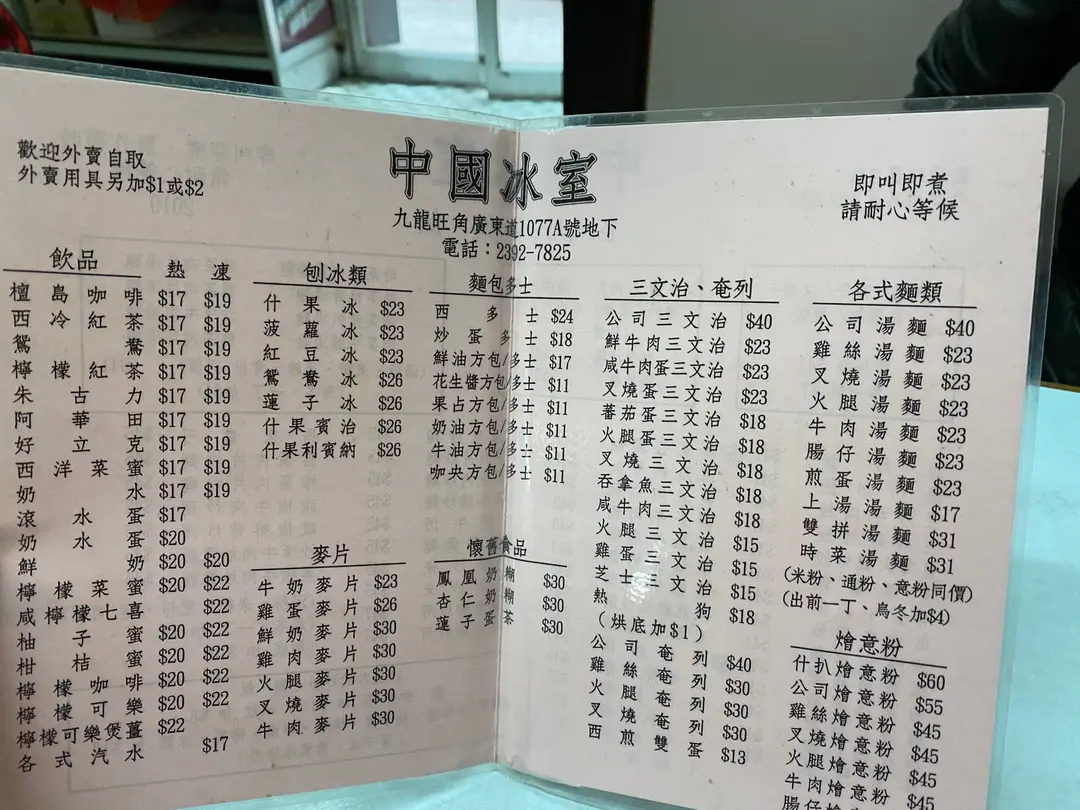 歡迎外賣自取
外賣用具另加$1或$2
中國冰室
九龍旺角廣東道1077A號地下
電話：2392-7825
即叫即煮
請耐心等候
飲品 熱 凍
檀島咖啡 $17 $19
西冷紅茶 $17 $19
鴛鴦 $17 $19
檸檬紅茶 $17 $19
朱古力 $17 $19
阿華田 $17 $19
好立克 $17 $19
西洋菜蜜 $17 $19
奶水 $17 $19
滾水蛋 $17
奶水蛋 $20
鮮奶 $20 $20
檸檬菜蜜 $20 $22
咸檸檬七喜 $22
柚子蜜 $20 $22
柑桔蜜 $20 $22
檸檬咖啡 $20 $22
檸檬可樂 $20 $22
檸檬可樂煲薑 $22
各式汽水 $17
刨冰類
什果冰 $23
菠蘿冰 $23
紅豆冰 $23
鴛鴦冰 $26
蓮子冰 $26
什果賓治 $26
什果利賓納 $26
麥片
牛奶麥片 $23
雞蛋麥片 $26
鮮奶麥片 $30
雞肉麥片 $30
火腿麥片 $30
叉燒麥片 $30
牛肉麥片 $30
麵包多士
西多士 $24
炒蛋多士 $18
鮮油方包/多士 $17
花生醬方包/多士 $11
果占方包/多士 $11
奶油方包/多士 $11
牛油方包/多士 $11
咖央方包/多士 $11
懷舊食品
鳳凰奶糊 $30
杏仁奶糊 $30
蓮子蛋茶 $30
三文治、奄列
公司三文治 $40
鮮牛肉三文治 $23
咸牛肉蛋三文治 $23
叉燒蛋三文治 $23
蕃茄蛋三文治 $18
火腿蛋三文治 $18
叉燒三文治 $18
吞拿魚三文治 $18
咸牛肉三文治 $18
火腿三文治 $15
雞蛋三文治 $15
芝士三文治 $15
熱狗 $18
(烘底加$1)
公司奄列 $40
雞絲奄列 $30
火腿奄列 $30
叉燒奄列 $30
西煎雙蛋 $13
各式麵類
公司湯麵 $40
雞絲湯麵 $23
叉燒湯麵 $23
火腿湯麵 $23
牛肉湯麵 $23
腸仔湯麵 $23
煎蛋湯麵 $23
上湯湯麵 $17
雙拼湯麵 $31
時菜湯麵 $31
(米粉、通粉、意粉同價)
(出前一丁、烏冬加$4)
燴意粉
什扒燴意粉 $60
公司燴意粉 $55
雞絲燴意粉 $45
叉燒燴意粉 $45
火腿燴意粉 $45
牛肉燴意粉 $45
腸仔燴